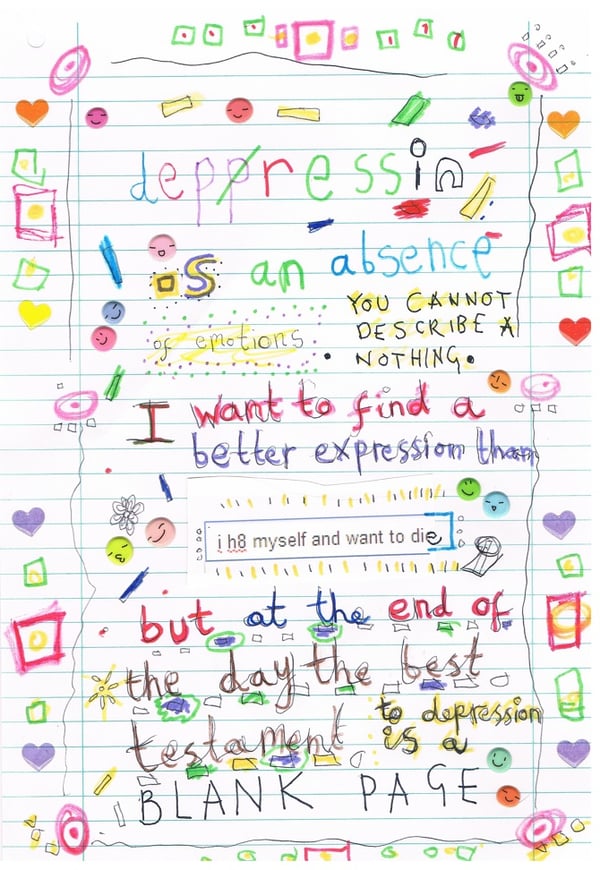 deppressin
is an absence
of emotions.
YOU CANNOT
DESCRIBE A
NOTHING.
I want to find a
better expression than
i h8 myself and want to die
but at the end of
the day the best
testament to depression
is a
BLANK PAGE